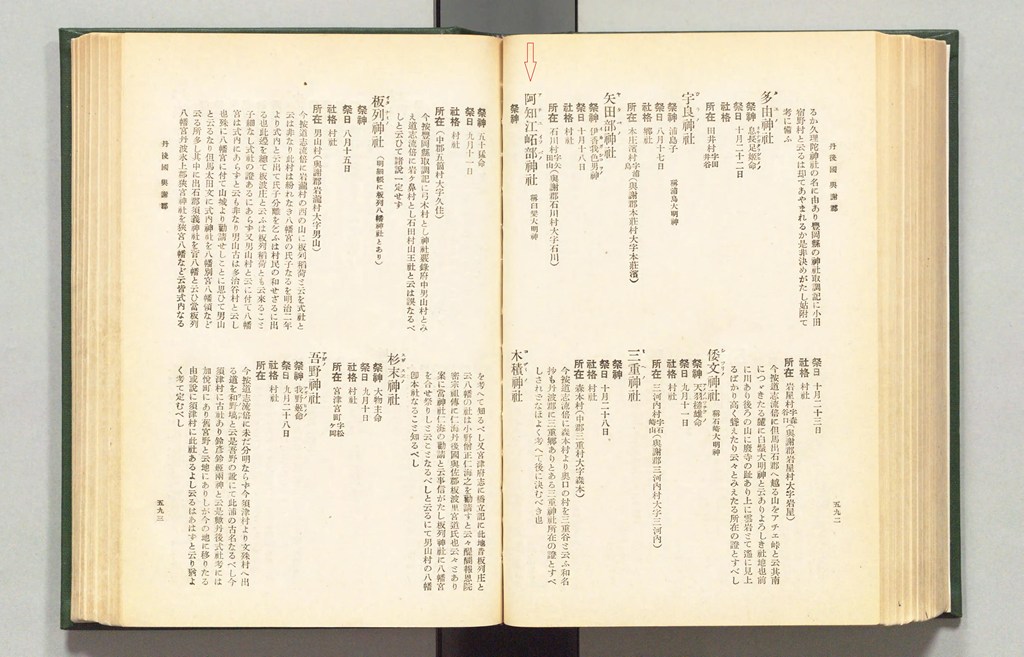 丹後國 與謝郡
るか久理陀神社の名に由あり豐岡縣の神社取調記に小田
宿野村と云るは却てあやまれるか是非決めがたし姑附て
考に備ふ
多由神社
祭神 息長足姬命
祭日 十月二十二日
社格 村社
所在 田井村字国井谷
宇良神社 稱浦島大明神
祭神 浦島子
祭日 八月十七日
社格 鄕社
所在 本庄濱村字浦島(與謝郡本莊村大字本莊濱)
矢田部神社
祭神 伊香我色男神
祭日 十月十八日
社格 村社
所在 石川村字矢田岡山(與謝郡石川村大字石川)
阿知江𡶌部神社 稱白柴大明神
祭神
祭日 十月二十三日
社格 村社
所在 岩屋村字森谷口(與謝郡岩屋村大字岩屋)
今按道志流倍に但馬出石郡へ越る山をアチエ峠と云其南
につゞきたる麓に白鬚大明神と云ありよろしき社地也前
に川あり後ろの山に廢寺の趾あり上に雲岩とて遙に見上
るばかり高く聳えたり云々とみえたる所在の證とすべし
倭文神社 稱石崎大明神
祭神 天羽槌雄命
祭日 九月十一日
社格 村社
所在 三河內村字石崎山(與謝郡三河內村大字三河內)
三重神社
祭神
祭日 十月二十八日
社格 村社
所在 森本村(中郡三重村大字森本)
今按道志流倍に森本村より奧口の村を三重谷と云ふ和名
抄も丹波郡に三重鄕ありとある三重神社所在の證とすべ
しされどなほよく考へて後に決むべき也
木積神社
五九二
祭神 五十猛命
祭日 九月十一日
社格 村社
所在 (中郡五箇村大字久住)
今按豐岡縣取調記に弓木村とし神社覈錄府中男山村とみ
え道志流倍に岩ケ鼻村とし石田村山王社と云は誤なるべ
しと云ひて諸說一定せず
板列神社 (明細帳に板列八幡神社とあり)
祭神
祭日 八月十五日
社格 村社
所在 男山村(與謝郡岩瀧村大字男山)
今按道志流倍に岩瀧村の西の山に板列稻荷と云を式社と
云は非なり此村は紛れなき八幡宮の氏子なるを明治二年
より式內と云出て氏子分離を乞ふは村民の和せざるに出
る也此邊を總て板波庄と云ふは板列稻荷とも云來ること
子細なし式社の證あるにあらず又男山村と云に付て八幡
宮は式內にあらずと云も非なり男山古は多治谷村と云し
也殊に八幡宮に付て山城より勸請せしことに思ひて男山
と云るなり但馬太田文に式內神社を八幡別宮八幡領など
云る所多し其中に出石郡須義神社を菅八幡と云ひ當板列
八幡宮丹波氷上郡狹宮神社を狹宮八幡など云皆式內なる
を考へて知るべし又宮津府志に橋立記に此地昔板列庄と
云八幡の社は小野僧正仁海之を勸請すと云々醍醐報恩院
密宗祖傳に仁海丹後國與佐郡板波里宮道氏也云々とあり
案に當神社仁海の勸請と云事信がたし板列神社に八幡宮
を合せ祭りしと云ことなるべしと云るにて男山村の八幡
卽本社なること知るべし
杉末神社
祭神 大物主命
祭日 九月十日
社格 村社
所在 宮津宮町字松ケ岡
吾野神社
祭神 我野姬命
祭日 九月二十八日
社格 村社
所在
今按道志流倍に未だ分明ならず今須津村より文殊村へ出
る道を和野塙と云是吾野の訛にて此浦の古名なるべし今
須津村に古社あり鉾彥鉾姬兩神と云是歟丹後式社考には
加悅町にあり舊宮野と云地にありしが今の地に移りたる
由或說に須津村に此社あるよし云るはあはずと云り猶よ
く考て定むべし
丹後國 與謝郡
五九三